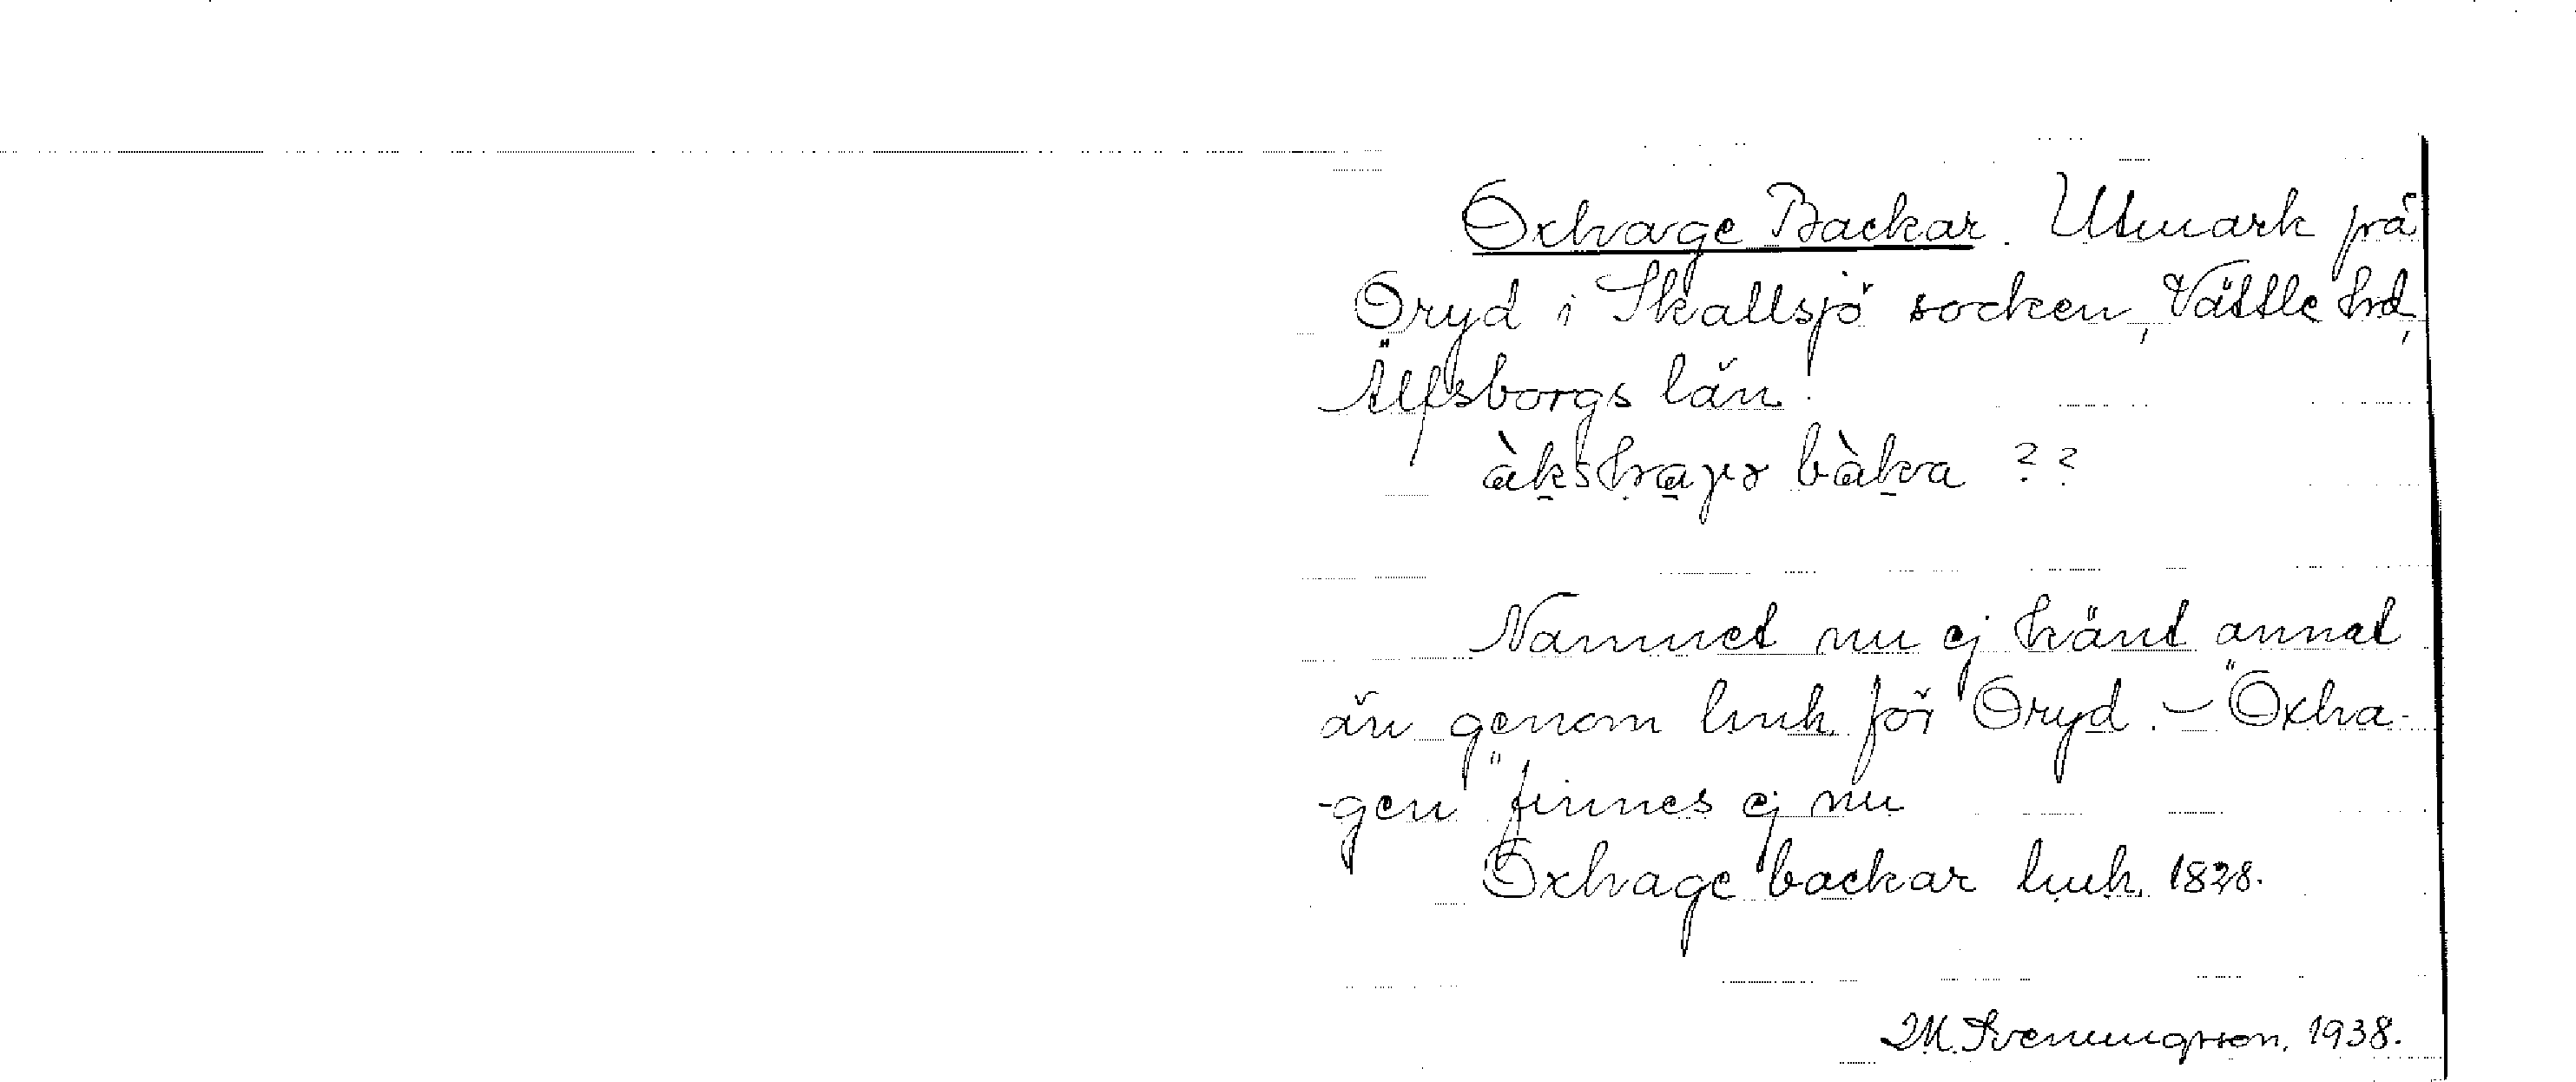 Oxhage Backar. Utmark på
Öryd i Skallsjö socken, Vättle hd,
Älfsborgs län.
àkshaɣə bàka ??
Namnet nu ej känt annat
än genom lmh. för Öryd. – "Oxha-
-gen" finnes ej nu
Oxhage backar lmh. 1828.
M. Svenningsson. 1938.